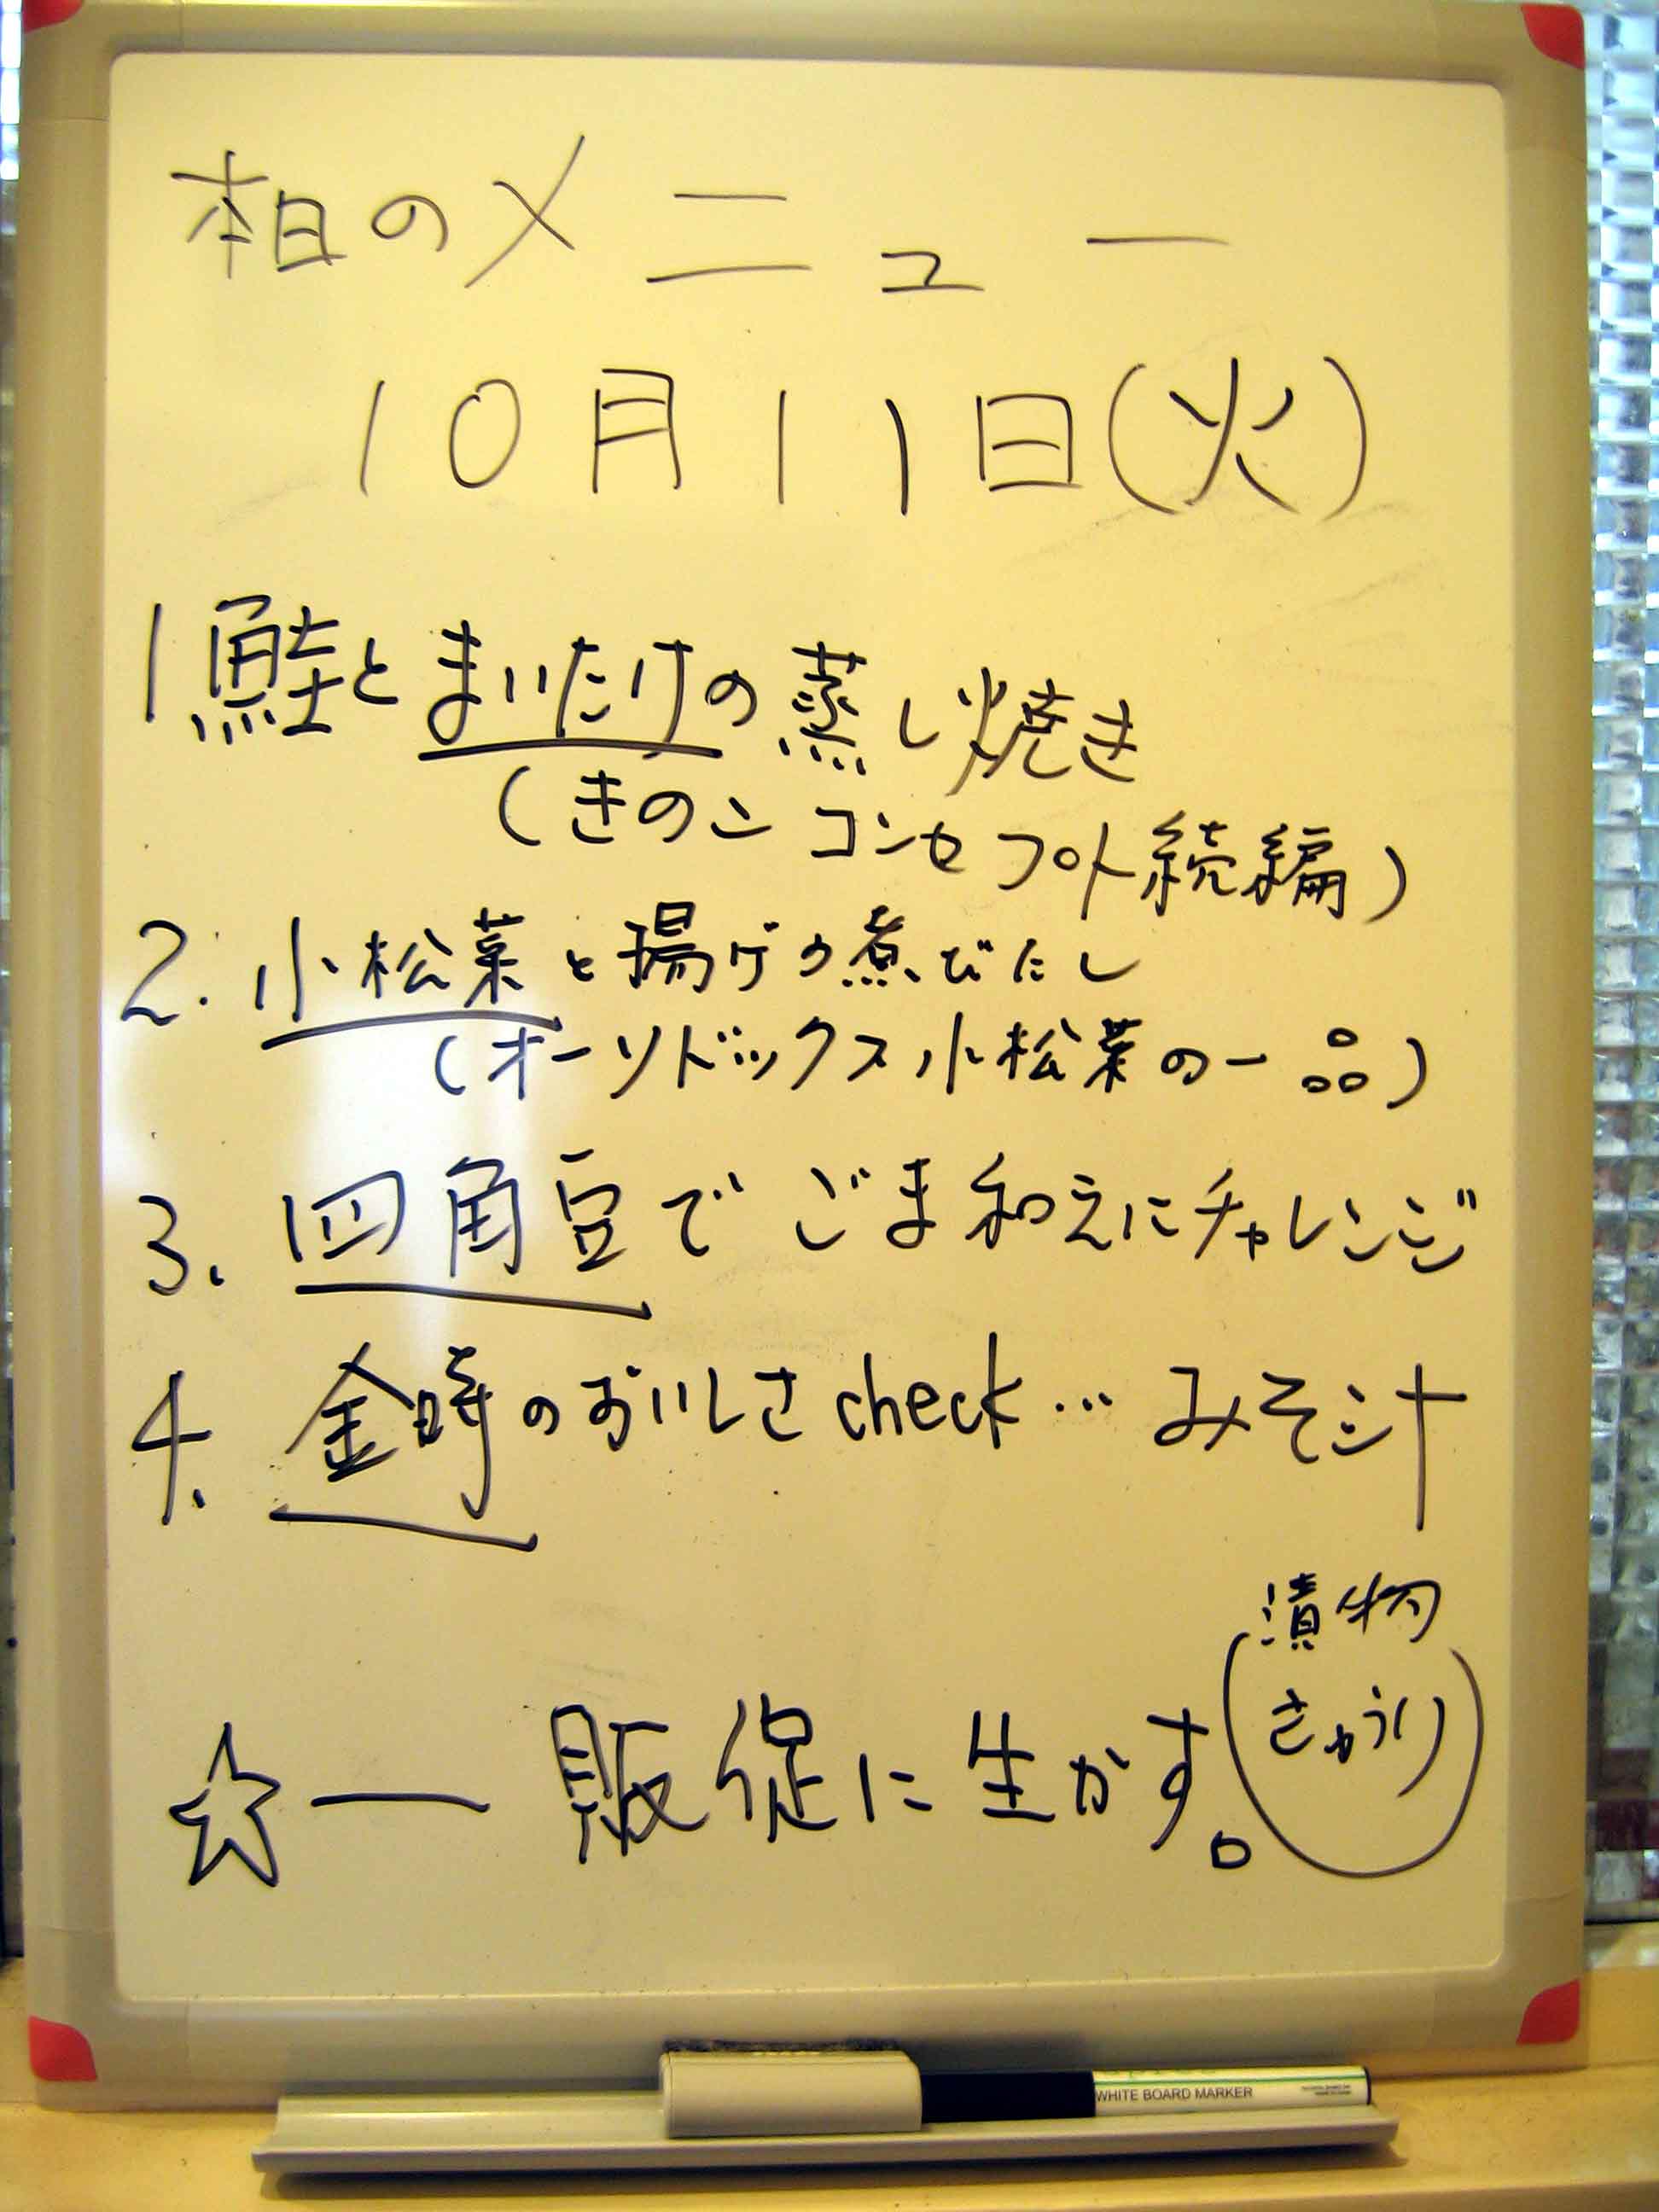 本日のメニュー
10月11日(火)
1 鮭とまいたけの蒸し焼き
(きのこ コンセプト続編)
2. 小松菜と揚げの煮びたし
(オーソドックス小松菜の一品)
3. 四角豆でごま和えにチャレンジ
4. 金時のおいしさcheck…みそ汁
☆― 販促に生かす。
(漬物
きゅうり)
WHITE BOARD MARKER